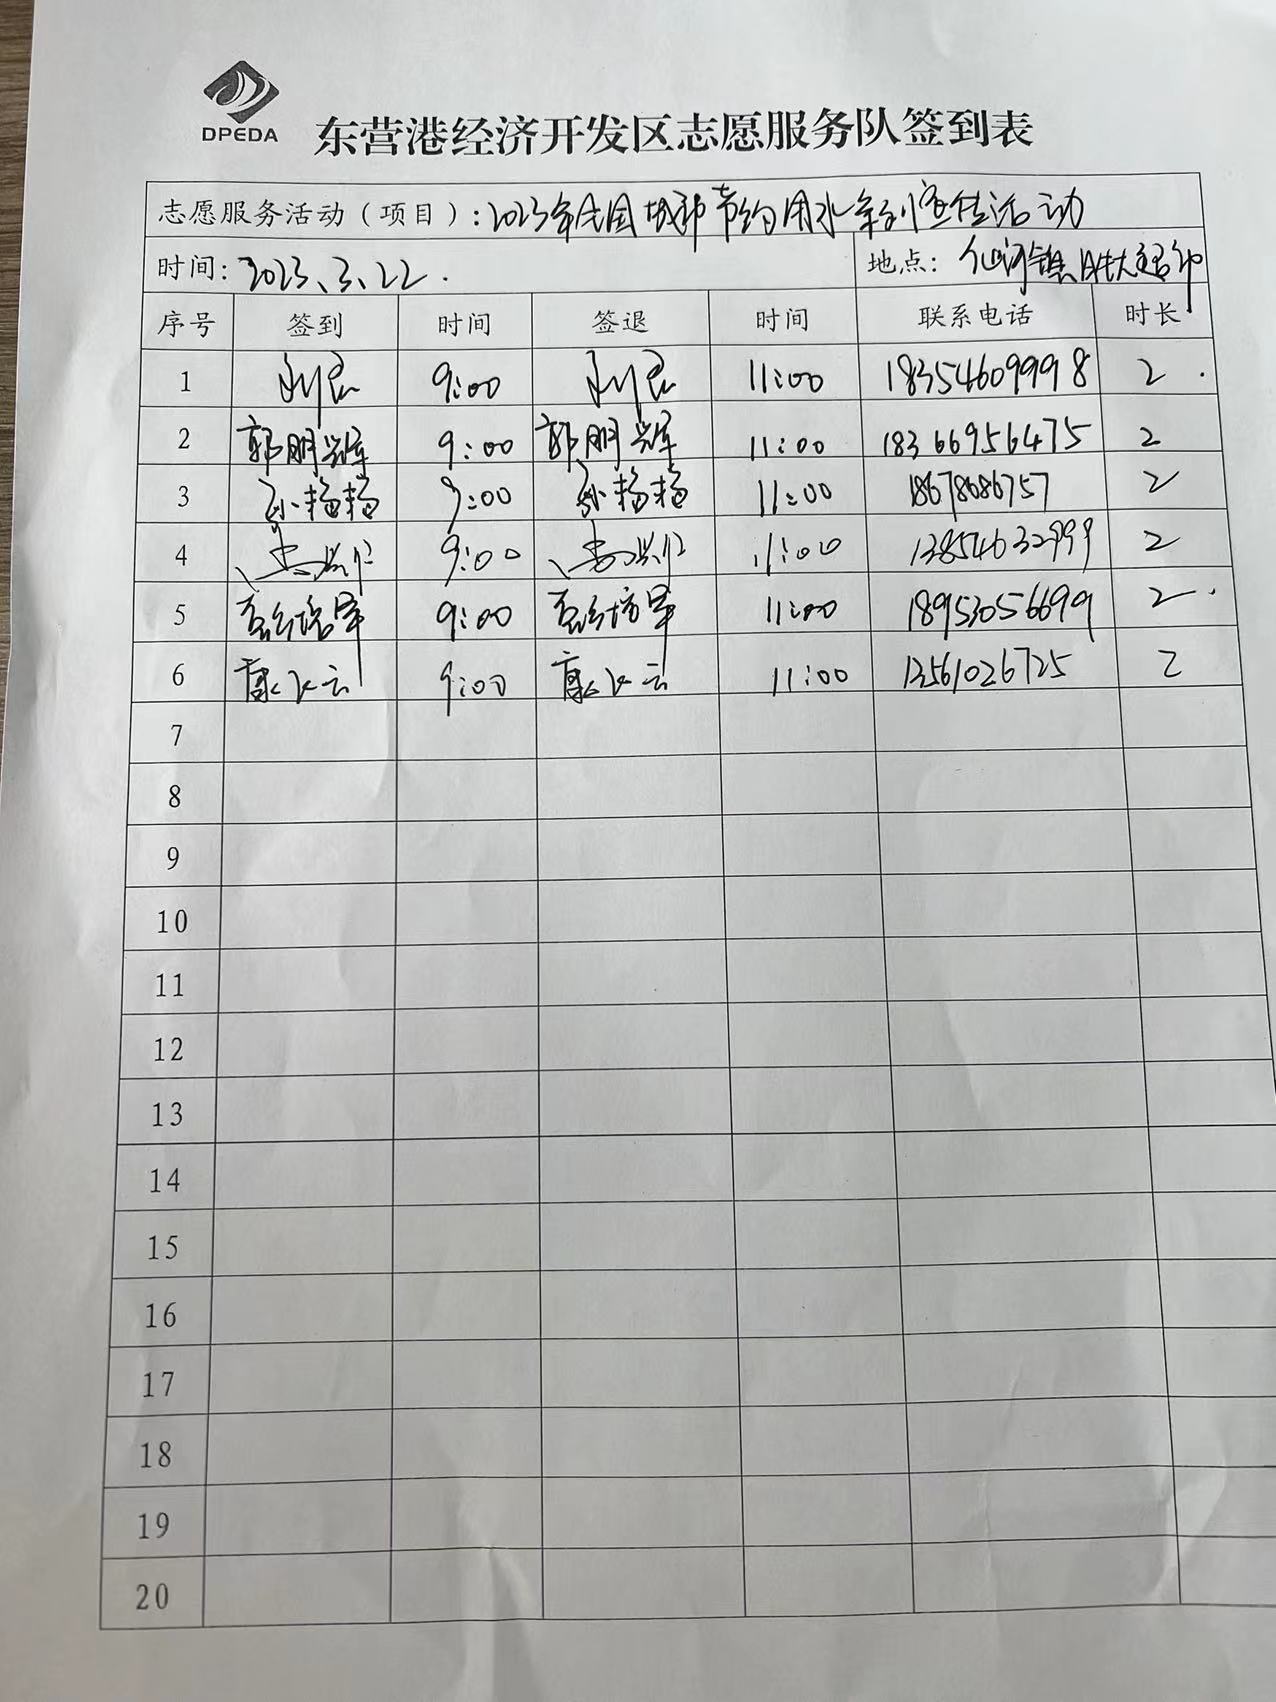 DPEDA
东营港经济开发区志愿服务队签到表
志愿服务活动（项目）：2023年全国城市节约用水系列宣传活动
时间：2023.3.22. 地点：仙河镇
序号 签到 时间 签退 时间 联系电话 时长
1 刘民 9:00 刘民 11:00 18354609998 2
2 郭朋辉 9:00 郭朋辉 11:00 18366956475 2
3 孙杨杨 9:00 孙杨杨 11:00 18678686757 2
4 9:00 11:00 13854632999 2
5 9:00 11:00 18953056699 2
6 康飞云 9:00 康飞云 11:00 13561026725 2
7
8
9
10
11
12
13
14
15
16
17
18
19
20